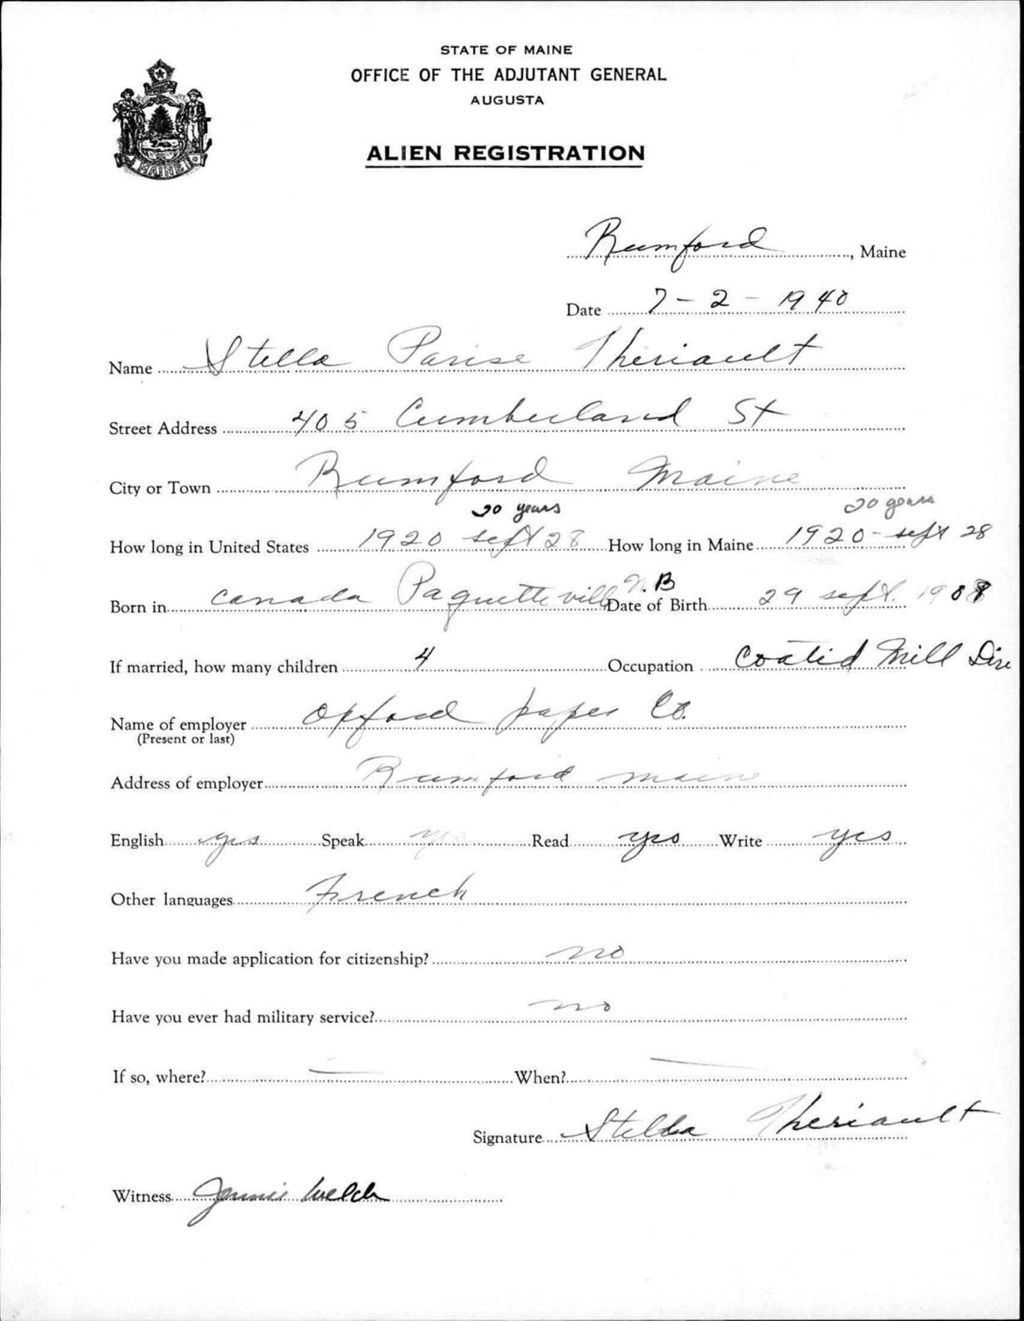 STATE OF MAINE
OFFICE OF THE ADJUTANT GENERAL
AUGUSTA
ALIEN REGISTRATION
MAINE
Rumford, Maine
Date 7-2-1940
Name Stella Parise Theriault
Street Address 405 Cumberland St
City or Town Rumford Maine
20 years 20 years
How long in United States 1920 sept 28 How long in Maine 1920-sept 28
Born in Canada Paquetteville N.B Date of Birth 29 sept. 1908
If married, how many children 4 Occupation Coated Mill
Name of employer Oxford paper Co.
(Present or last)
Address of employer Rumford maine
English yes Speak yes Read yes Write yes
Other languages French
Have you made application for citizenship? no
Have you ever had military service? no
If so, where? — When? —
Signature Stella Theriault
Witness Jennie Welch